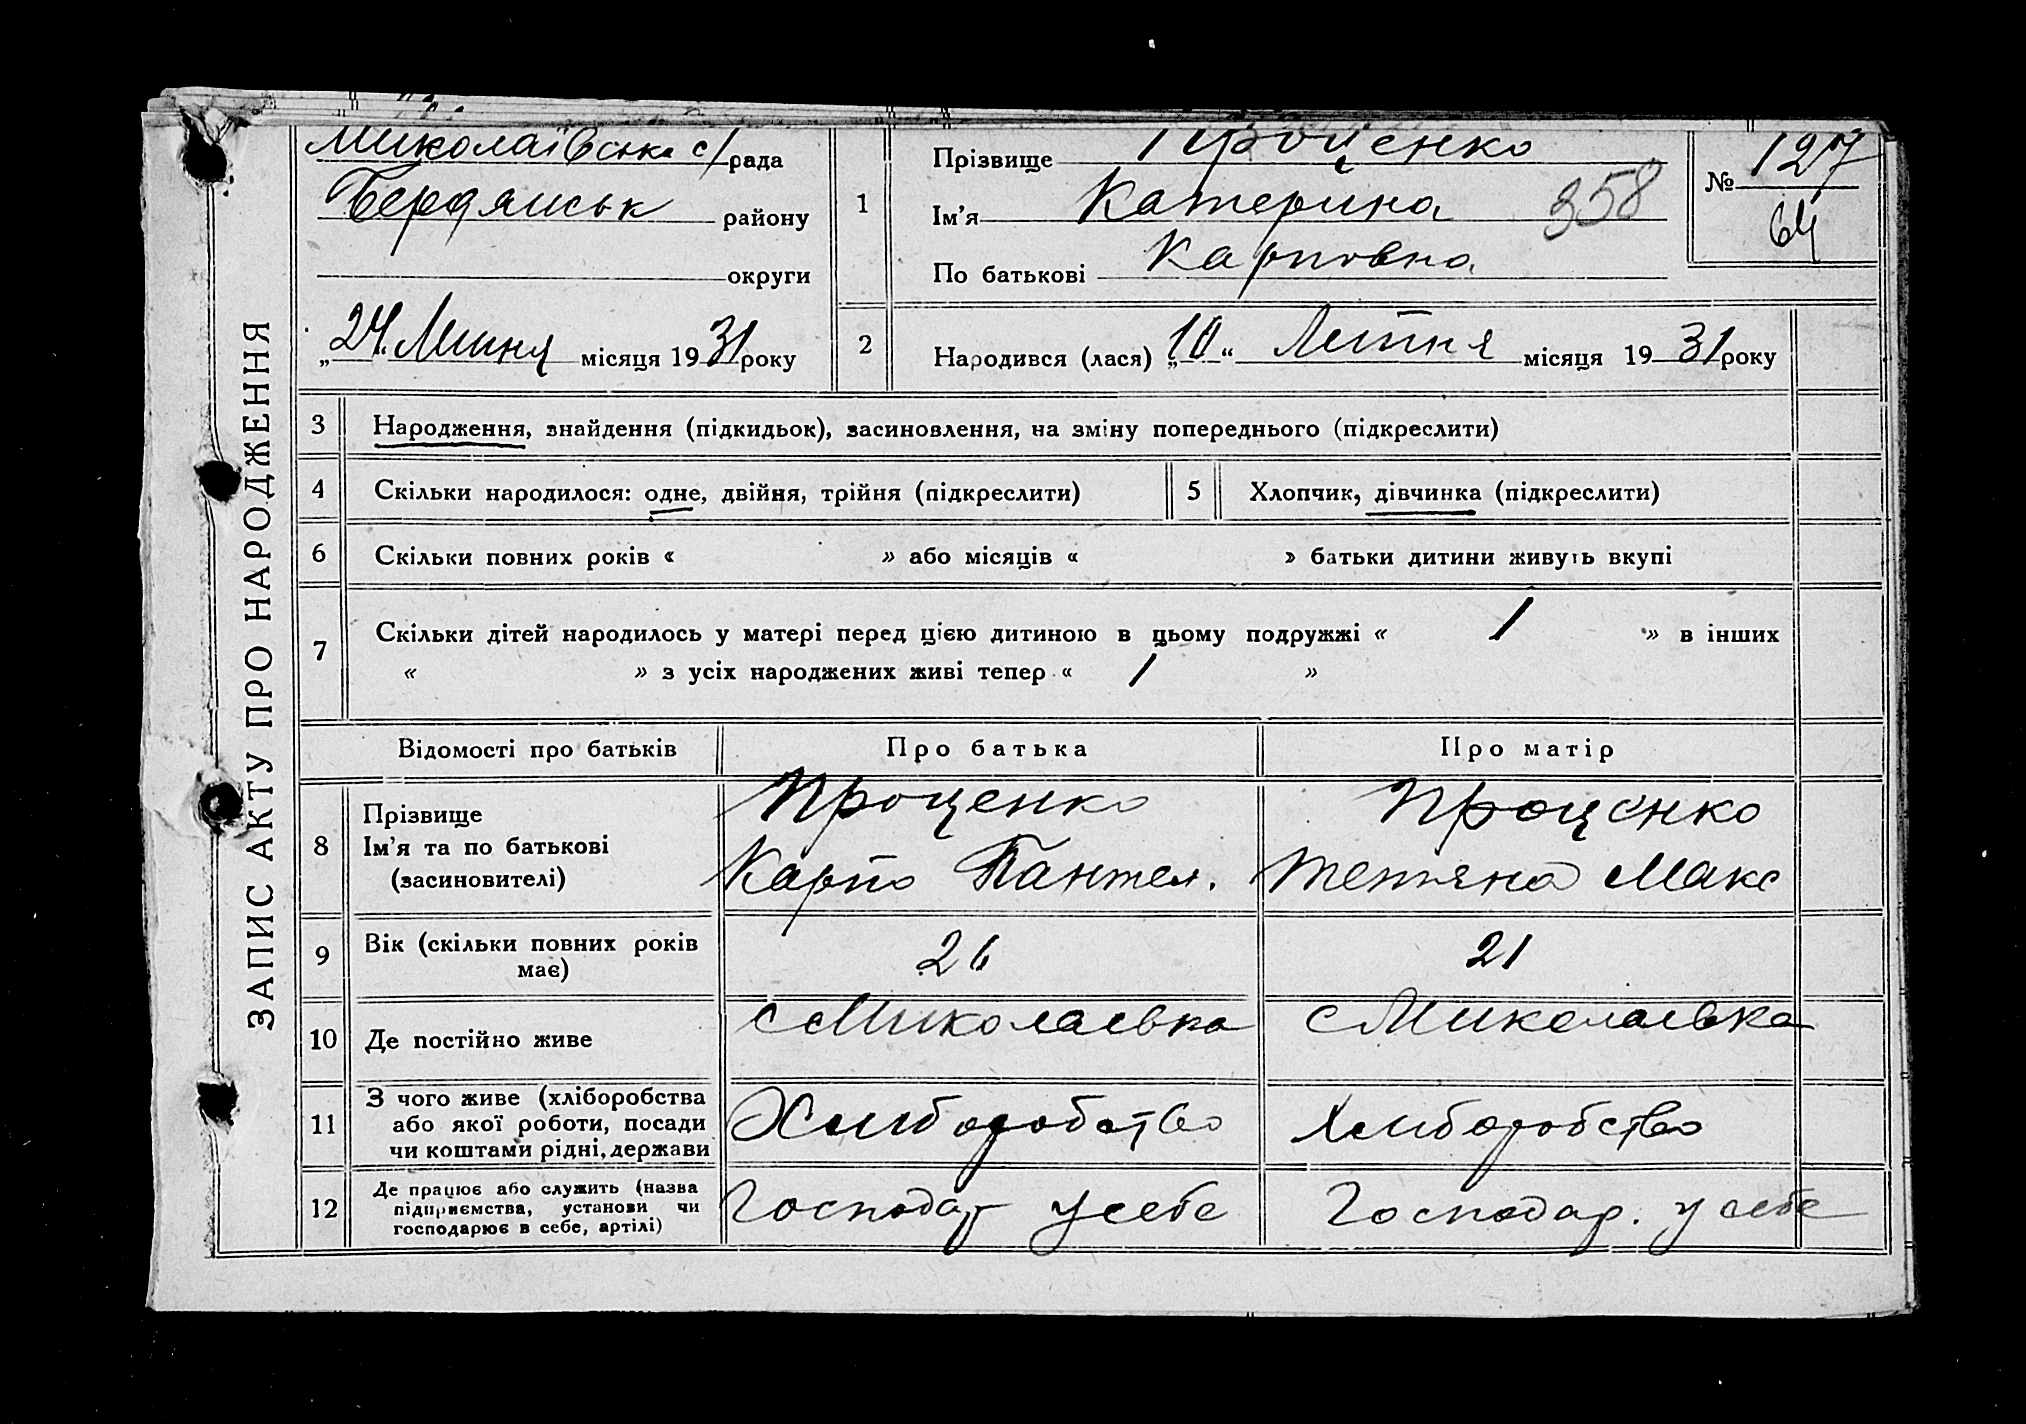 ЗАПИС АКТУ ПРО НАРОДЖЕННЯ
Миколаївська с/рада
Бердянськ району
округи
„24“ Липня місяця 1931 року
1
Прізвище Проценко
Ім'я Катерина 358
По батькові Карповна
№ 127
64
2
Народився (лася) „10“ Липня місяця 1931 року
3 Народження, знайдення (підкидьок), засиновлення, на зміну попереднього (підкреслити)
4 Скільки народилося: одне, двійня, трійня (підкреслити) 5 Хлопчик, дівчинка (підкреслити)
6 Скільки повних років « » або місяців « » батьки дитини живуть вкупі
7 Скільки дітей народилось у матері перед цією дитиною в цьому подружжі « 1 » в інших
« » з усіх народжених живі тепер « 1 »
Відомості про батьків Про батька Про матір
8 Прізвище Проценко Проценко
Ім'я та по батькові Карпо Пантел. Тетяна Макс
(засиновителі)
9 Вік (скільки повних років має) 26 21
10 Де постійно живе с Миколаевка с Миколаевка
11 З чого живе (хліборобства або якої роботи, посади чи коштами рідні, держави Хлиборобство Хлиборобство
12 Де працює або служить (назва підприємства, установи чи господарює в себе, артілі) Господар у себе Господар. у себе